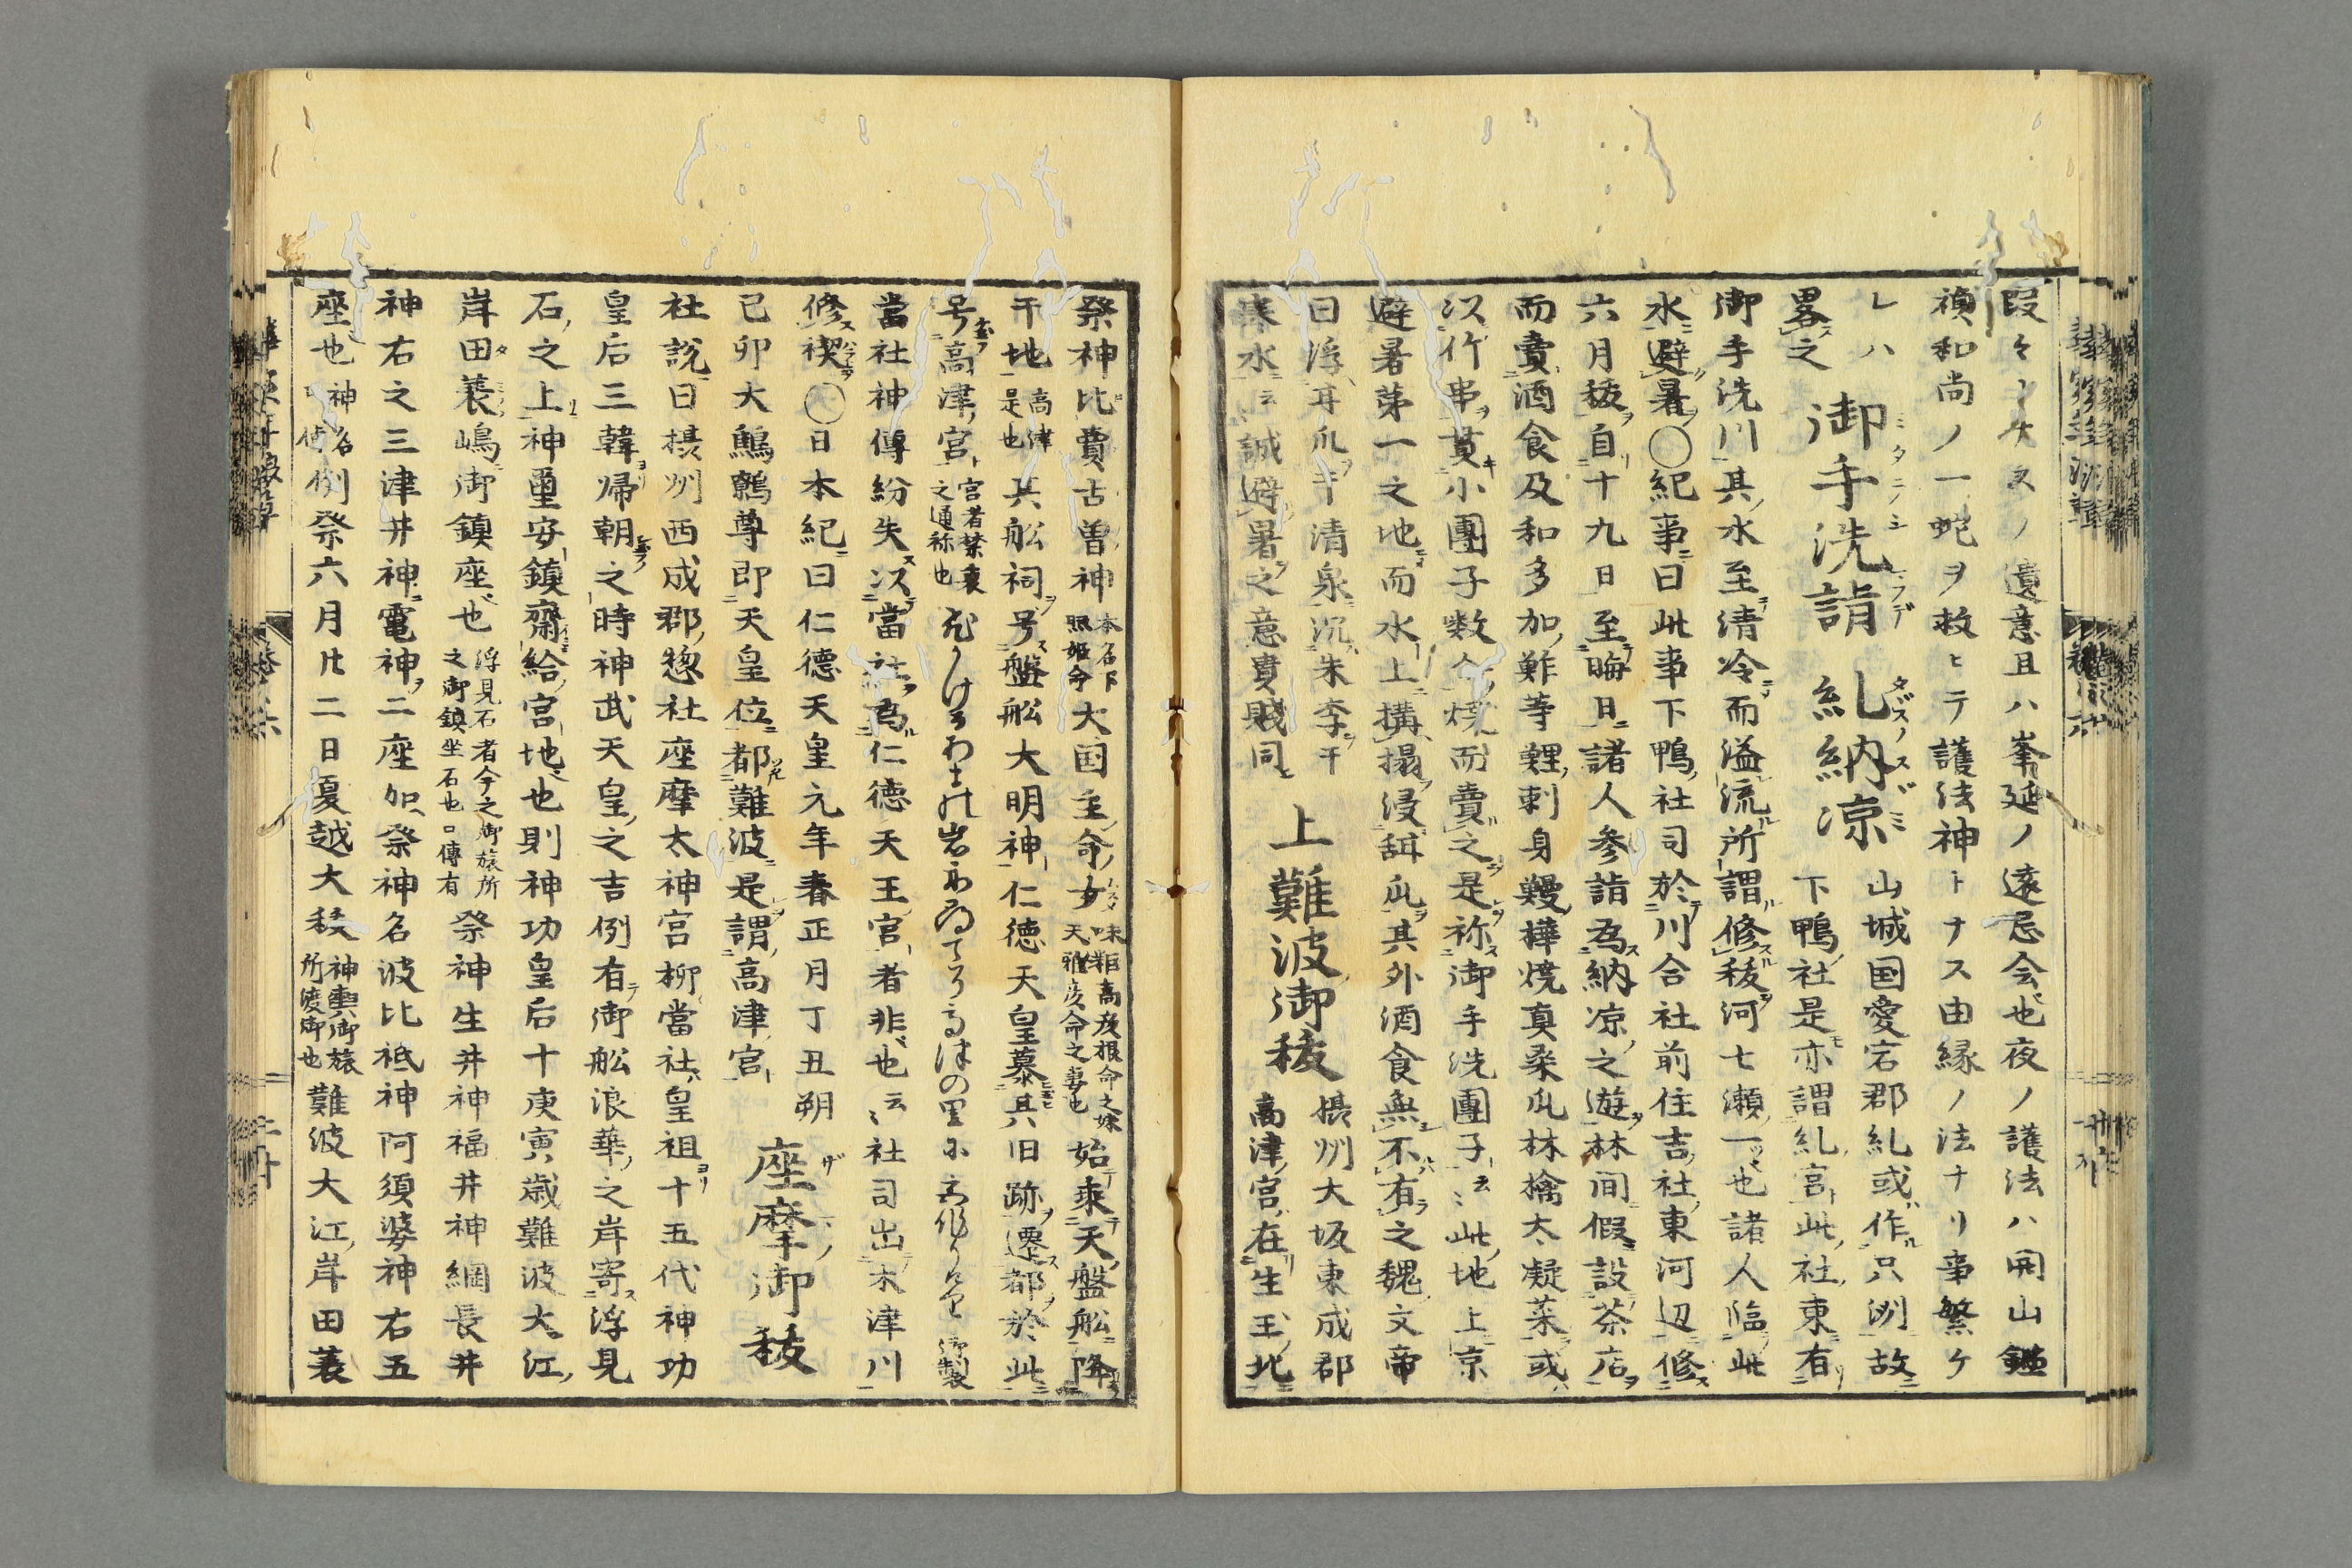 段々ノ
遺意且ハ峯延ノ遠忌会也夜ノ護法ハ開山鑑
禎和尚ノ一蛇ヲ救ヒテ護法神トナス由縁ノ法ナリ事繁ケ
レハ畧之
御手洗詣 糺納凉
山城国愛宕郡糺或作只洲故
下鴨社是亦謂糺宮此社東有
御手洗川其水至清冷而溢流所謂修秡河七瀬一也諸人臨此
水避暑〇紀事曰此事下鴨社司於川合社前住吉社東河辺修
六月秡自十九日至晦日諸人参詣為納凉之遊林間假設茶店
而賣酒食及和多加鮓等鯉刺身鰻樺焼真桑瓜林檎太凝菜或
以竹串貫小團子数令焼而賣之是称御手洗團子云〻此地上京
避暑第一之地而水上搆搨浸甜瓜其外酒食無不有之魏文帝
曰浮甘瓜于清泉沉朱李于
寒水云〻誠避暑之意貴賎同
上難波御秡
摂州大坂東成郡
高津宮在生玉北
祭神比賣古曽神
本名下
照姫命
大国主命女
味耜高彦根命之妹
天雅彦命之妻也
始乗天盤船降
于地
高津
是也
其船祠号盤船大明神仁徳天皇慕其旧跡遷都於此
号高津宮
宮者禁裏
之通称也
御製
當社神傳紛失以當社為仁徳天王宮者非也云〻社司出木津川
修禊〇日本紀曰仁徳天皇元年春正月丁丑朔
己卯大鷦鷯尊即天皇位都難波是謂高津宮
座摩御秡
社説曰摂州西成郡惣社座摩太神宮柳當社皇祖十五代神功
皇后三韓帰朝之時神武天皇之吉例有御船浪華之岸寄浮見
石之上神璽安鎮齋給宮地也則神功皇后十庚寅歳難波大江
岸田蓑嶋御鎮座也
浮見石者今之御旅所
之御鎮坐石也口傳有
祭神生井神福井神綱長井
神右之三津井神竃神二座加祭神名波比祗神阿須婆神右五
座也
例祭六月廿二日夏越大秡
神輿御旅
所渡御也
難波大江岸田蓑